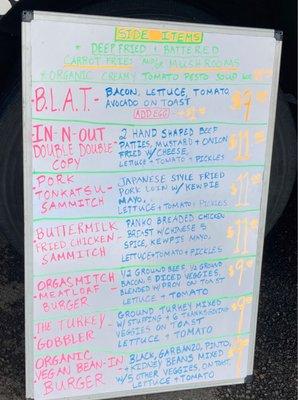 SIDE ITEMS
* DEEP FRIED & BATTERED
CARROT FRIES and/or MUSHROOMS
*ORGANIC CREAMY TOMATO PESTO SOUP
B.L.A.T. - BACON, LETTUCE, TOMATO,
AVOCADO ON TOAST
ADD EGG
IN-N-OUT
DOUBLE DOUBLE
COPY
2 HAND SHAPED BEEF
PATTIES, MUSTARD & ONION
FRIED W/CHEESE,
LETTUCE + TOMATO + PICKLES
PORK
TONKATSU
SAMMITCH
JAPANESE STYLE FRIED
PORK LOIN W/ KEWPIE
MAYO,
LETTUCE + TOMATO + PICKLES
BUTTERMILK
FRIED CHICKEN
SAMMITCH
PANKO BREADED CHICKEN
BREAST W/CHINESE 5
SPICE, KEWPIE MAYO,
LETTUCE + TOMATO + PICKLES
ORGASMITCH
MEATLOAF
BURGER
1/2 GROUND BEEF, 1/2 GROUND
BACON, 5 DICED VEGGIES,
BLENDED W/PROV ON TOAST
LETTUCE + TOMATO
THE TURKEY
GOBBLER
GROUND TURKEY MIXED
W/STUFFING + 6 THANKSGIVING
VEGGIES ON TOAST
LETTUCE + TOMATO
ORGANIC
VEGAN BEAN-IN
BURGER
BLACK, GARBANZO, PINTO,
+ KIDNEY BEANS MIXED
W/5 OTHER VEGGIES, ON TOAST,
LETTUCE + TOMATO